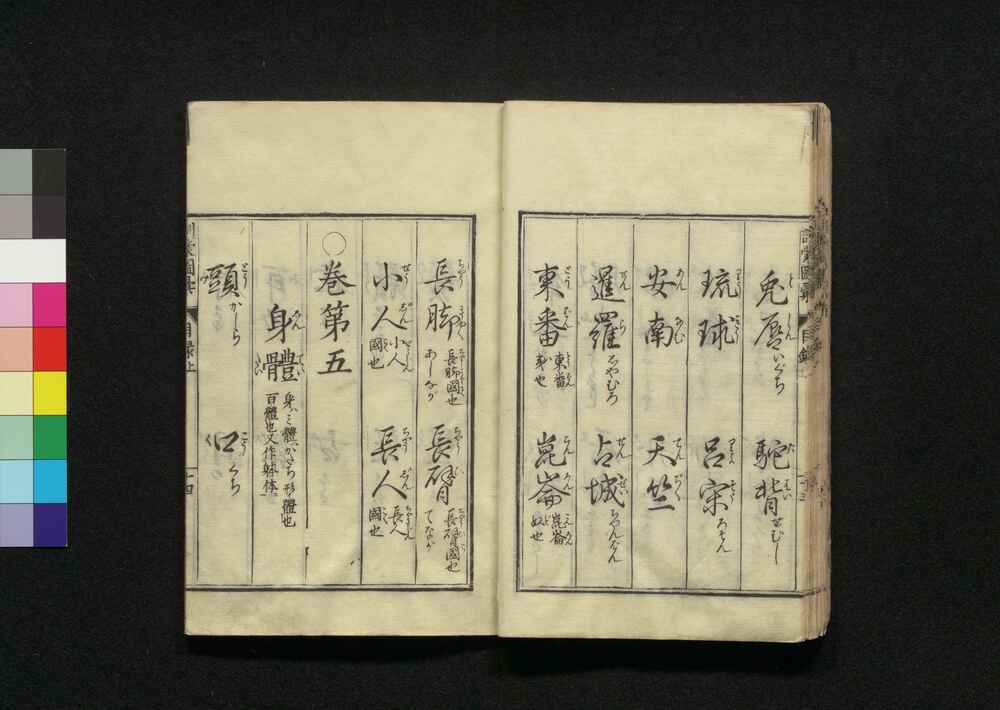 兎唇 いぐち 駝背 せむし
琉球 呂宋 ろそん
安南 天竺
暹羅 しやむろ 占城 ちやんばん
東番 東番夷也 崑崙 崑崙奴也
長脚 長脚國也 あしなが 長臂 長臂國也 てなが
小人 小人國也 長人 長人國也
○巻第五
身體 身ハミ體ハかたち形體也百體也又作躰体
頭 かしら 口 くち
目録上
十四